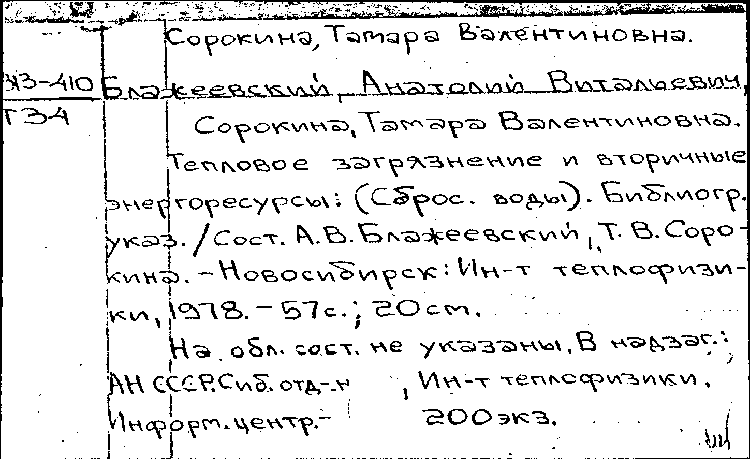 Сорокина, Тамара Валентиновна.
Блажеевский, Анатолий Витальевич,
Т34
Сорокина, Тамара Валентиновна.
Тепловое загрязнение и вторичные
энергоресурсы: (Сброс. воды). Библиогр.
указ. / Сост. А.В. Блажеевский, Т.В. Соро-
кина. - Новосибирск: Ин-т теплофизи-
ки, 1978. - 57с.; 20см.
На обл. сост. не указаны. В надзаг.:
АН СССР. Сиб. отд-н , Ин-т теплофизики.
Информ. центр. - 200экз.